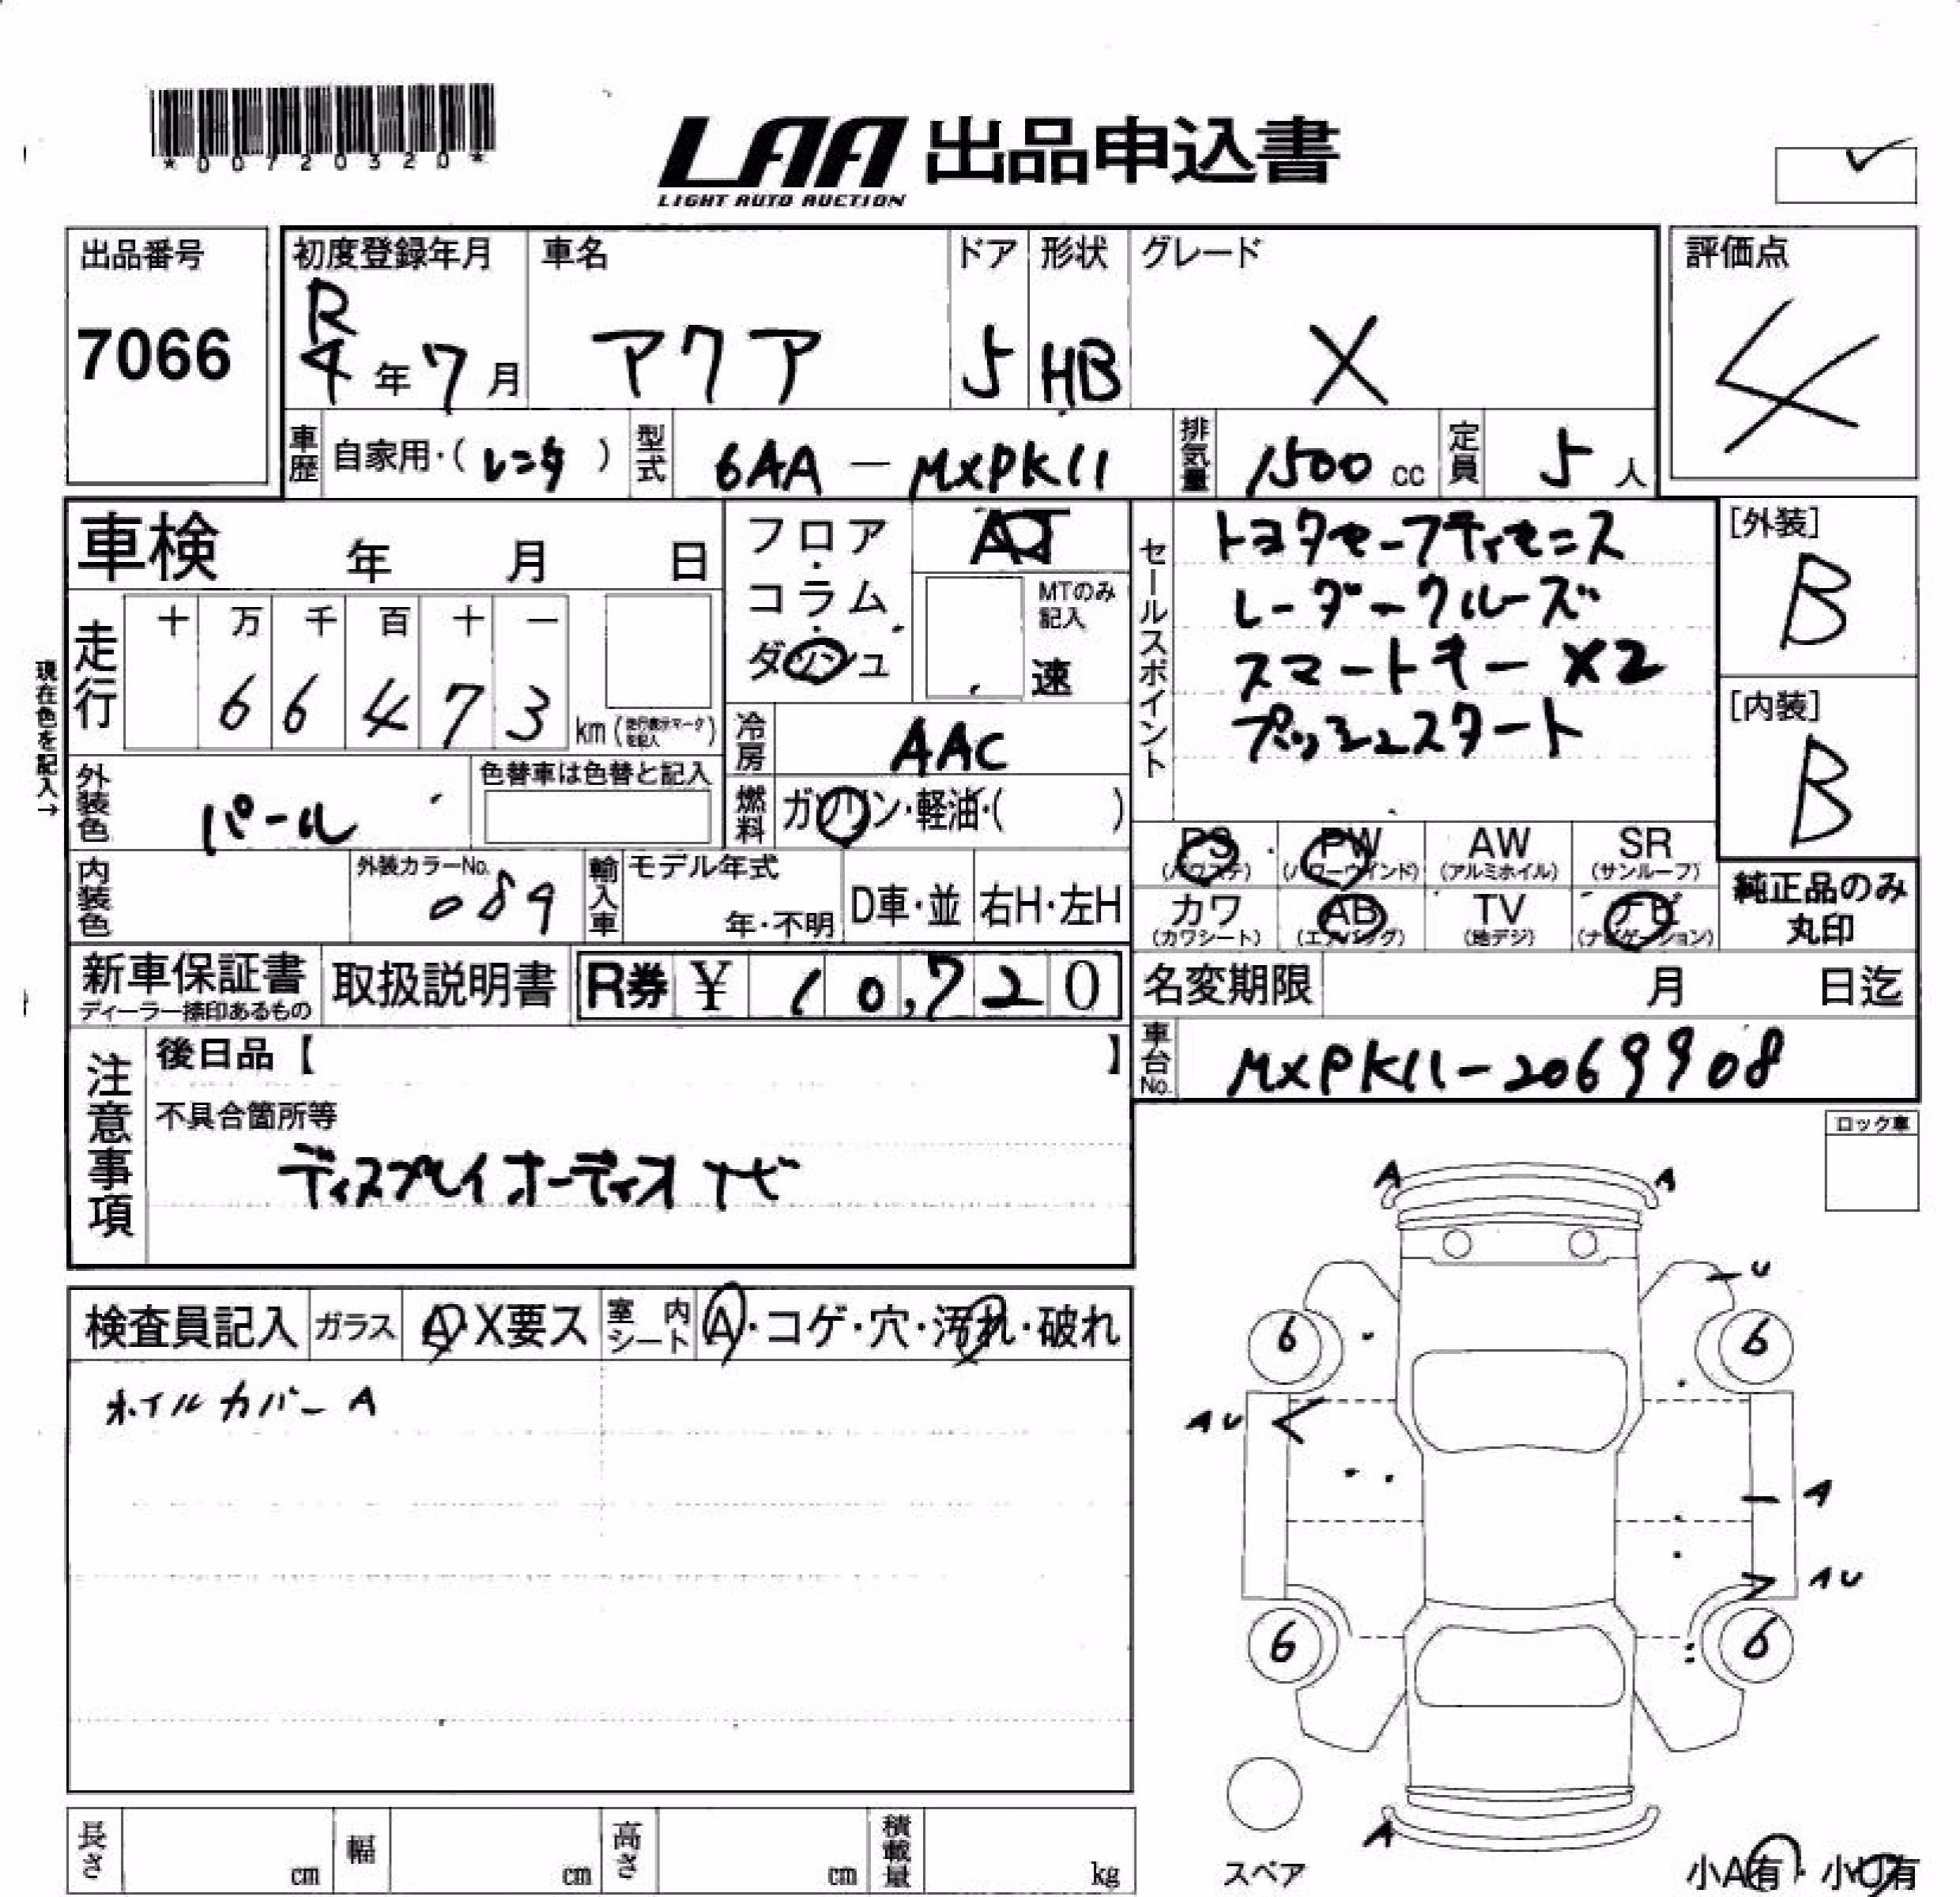 *00720320*
LAA 出品申込書
LIGHT AUTO AUCTION
出品番号
7066
初度登録年月
R
4年7月
車名
アクア
ドア
5
形状
HB
グレード
X
評価点
4
車歴
自家用・(レンタ)
型式
6AA-MXPK11
排気量
1500cc
定員
5人
車検 年 月 日
フロア・コラム・ダッシュ
AT
MTのみ記入
速
セールスポイント
トヨタセーフティセンス
レーダークルーズ
スマートキーX2
プッシュスタート
[外装]
B
[内装]
B
現在色を記入→
走行
十 万 千 百 十 一
6 6 4 7 3
km(走行表示マークを記入)
冷房
AAC
外装色
パール
色替車は色替と記入
燃料
ガソリン・軽油・( )
PS (パワステ)
PW (パワーウインド)
AW (アルミホイル)
SR (サンルーフ)
カワ (カワシート)
AB (エアバッグ)
TV (地デジ)
ナビ (ナビゲーション)
純正品のみ丸印
内装色
外装カラーNo.
089
輸入車
モデル年式
年・不明
D車・並
右H・左H
新車保証書
ディーラー捺印あるもの
取扱説明書
R券 ¥ 10,720
名変期限 月 日迄
車台No.
MXPK11-2069908
注意事項
後日品【 】
不具合箇所等
ディスプレイオーディオナビ
ロック車
検査員記入
ガラス
A・X要ス
室内シート
A・コゲ・穴・汚れ・破れ
ホイルカバーA
A
A
U
6
6
AU
A
AU
6
6
A
スペア
小A有・小U有
長さ cm
幅 cm
高さ cm
積載量 kg